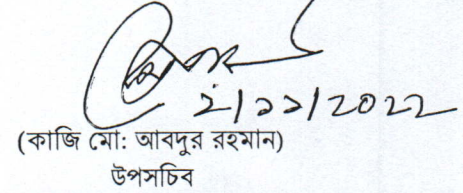 ২/১১/২০২২
(কাজি মো: আবদুর রহমান)
উপসচিব